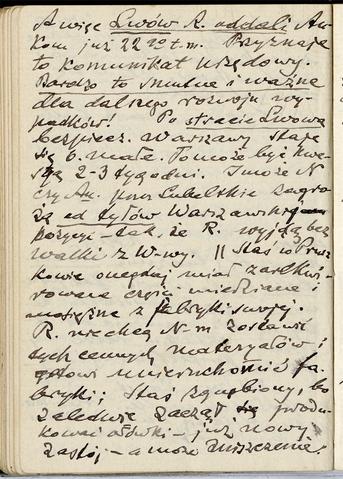 A więc Lwów R. oddali Au-
kom już 22 go t.m. Przyznaje
to komunikat urzędowy.
Bardzo to smutne i ważne
dla dalszego rozwoju wy-
padków! Po stracie Lwowa
bezpiecz. Warszawy staje
się b. małe. To może być kwe-
stją 2-3 tygodni. I może N
czy Au. przez Lubelskie zagro-
zą od tyłów Warszawskiej
pozycji – tak, że R. wyjdą bez
walki z W-wy. || Staś w Prusz-
kowie onegdaj miał zarekwi-
rowane części miedziane i
mosiężne z fabryki swojej.
R. nie chcą N-m zostawić
tych cennych materyałów i
gotowi unieruchomić fa-
bryki; Staś zgnębiony, bo
zaledwie zaczął się produ-
kować ołówki – już nowy
zastój, – a może zniszczenie.